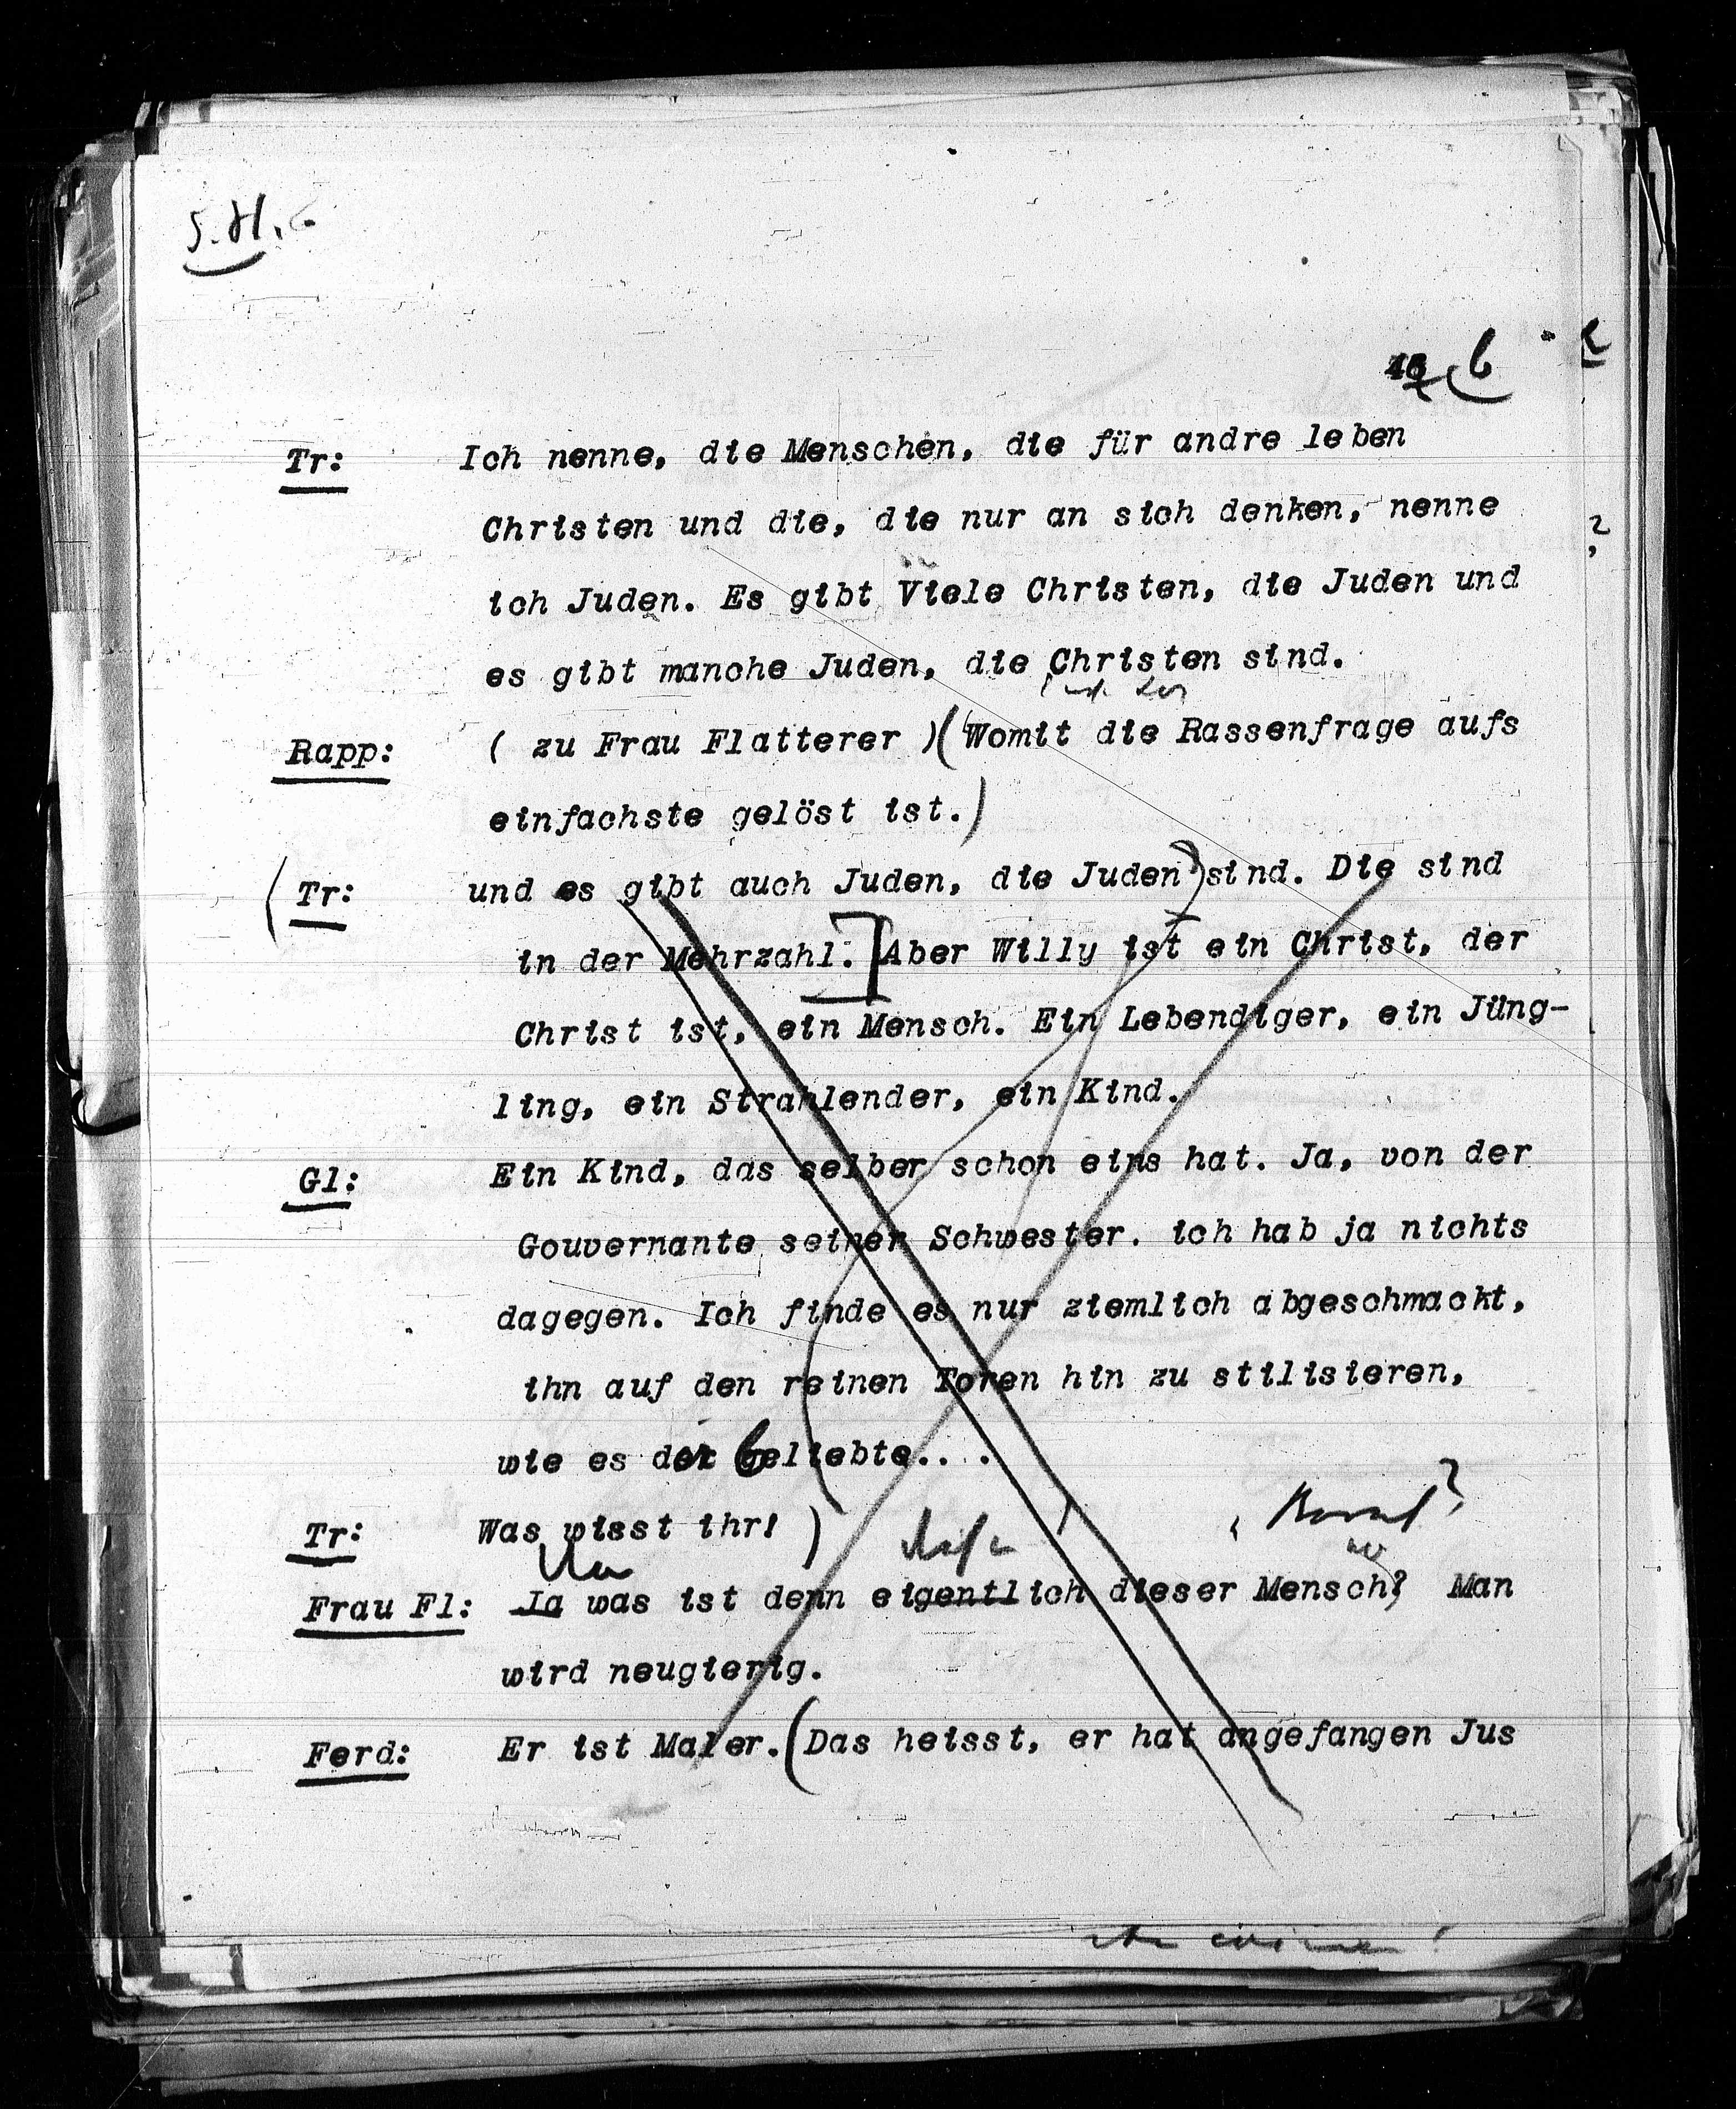 S.H.
6
Tr: Ich nenne, die Menschen, die für andre leben
Christen und die, die nur an sich denken, nenne
ich Juden. Es gibt Viele Christen, die Juden und
es gibt manche Juden, die Christen sind.
Rapp: ( zu Frau Flatterer ) (Womit die Rassenfrage aufs
einfachste gelöst ist.)
(Tr: und es gibt auch Juden, die Juden) sind. Die sind
in der Mehrzahl.] Aber Willy ist ein Christ, der
Christ ist, ein Mensch. Ein Lebendiger, ein Jüng-
ling, ein Strahlender, ein Kind.
Gl: Ein Kind, das selber schon eins hat. Ja, von der
Gouvernante seiner Schwester. ich hab ja nichts
dagegen. Ich finde es nur ziemlich abgeschmackt,
ihn auf den reinen Toren hin zu stilisieren,
wie es der Geliebte....
Tr: Was wisst ihr! )
Frau Fl: Ja was ist denn eigentlich dieser Mensch? Man
wird neugierig.
Ferd: Er ist Maler. (Das heisst, er hat angefangen Jus